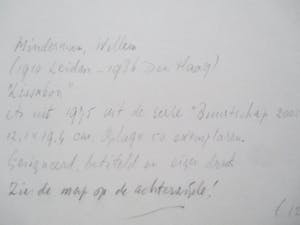 Minderman, Willem
(1910 Leiden - 1986 Den Haag)
"Lissabon"
ets uit 1975 uit de serie "Buurtschap 2000
12,1 x 19,4 cm. Oplage 50 exemplaren.
Gesigneerd, betiteld en eigen druk
Zie de map op de achterzijde!